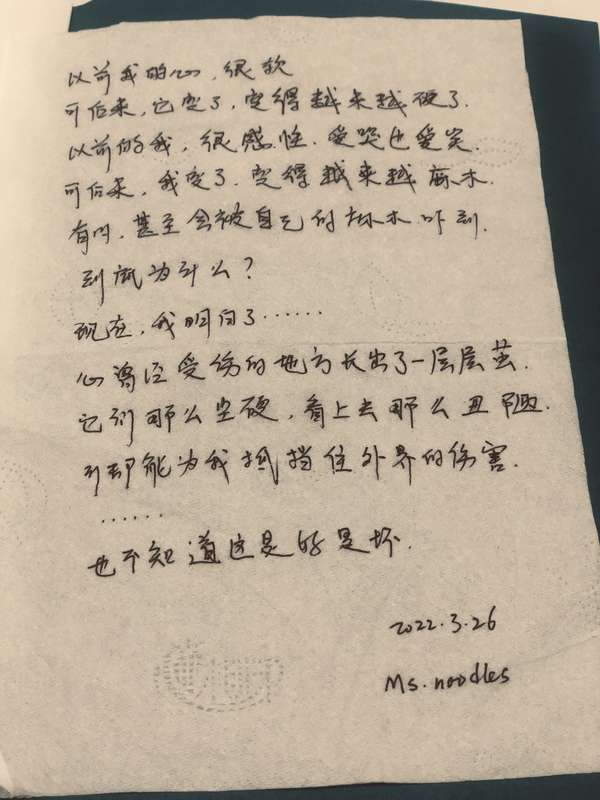 以前我的心，很软
可后来，它变了，变得越来越硬了.
以前的我，很感性.爱哭也爱笑.
可后来，我变了.变得越来越麻木.
有时，甚至会被自己的麻木吓到.
到底为什么？
现在，我明白了……
心曾经受伤的地方长出了一层层茧.
它们那么坚硬，看上去那么丑陋.
却能为我抵挡住外界的伤害.
……
也不知道这是好是坏.
2022.3.26
Ms.noodles